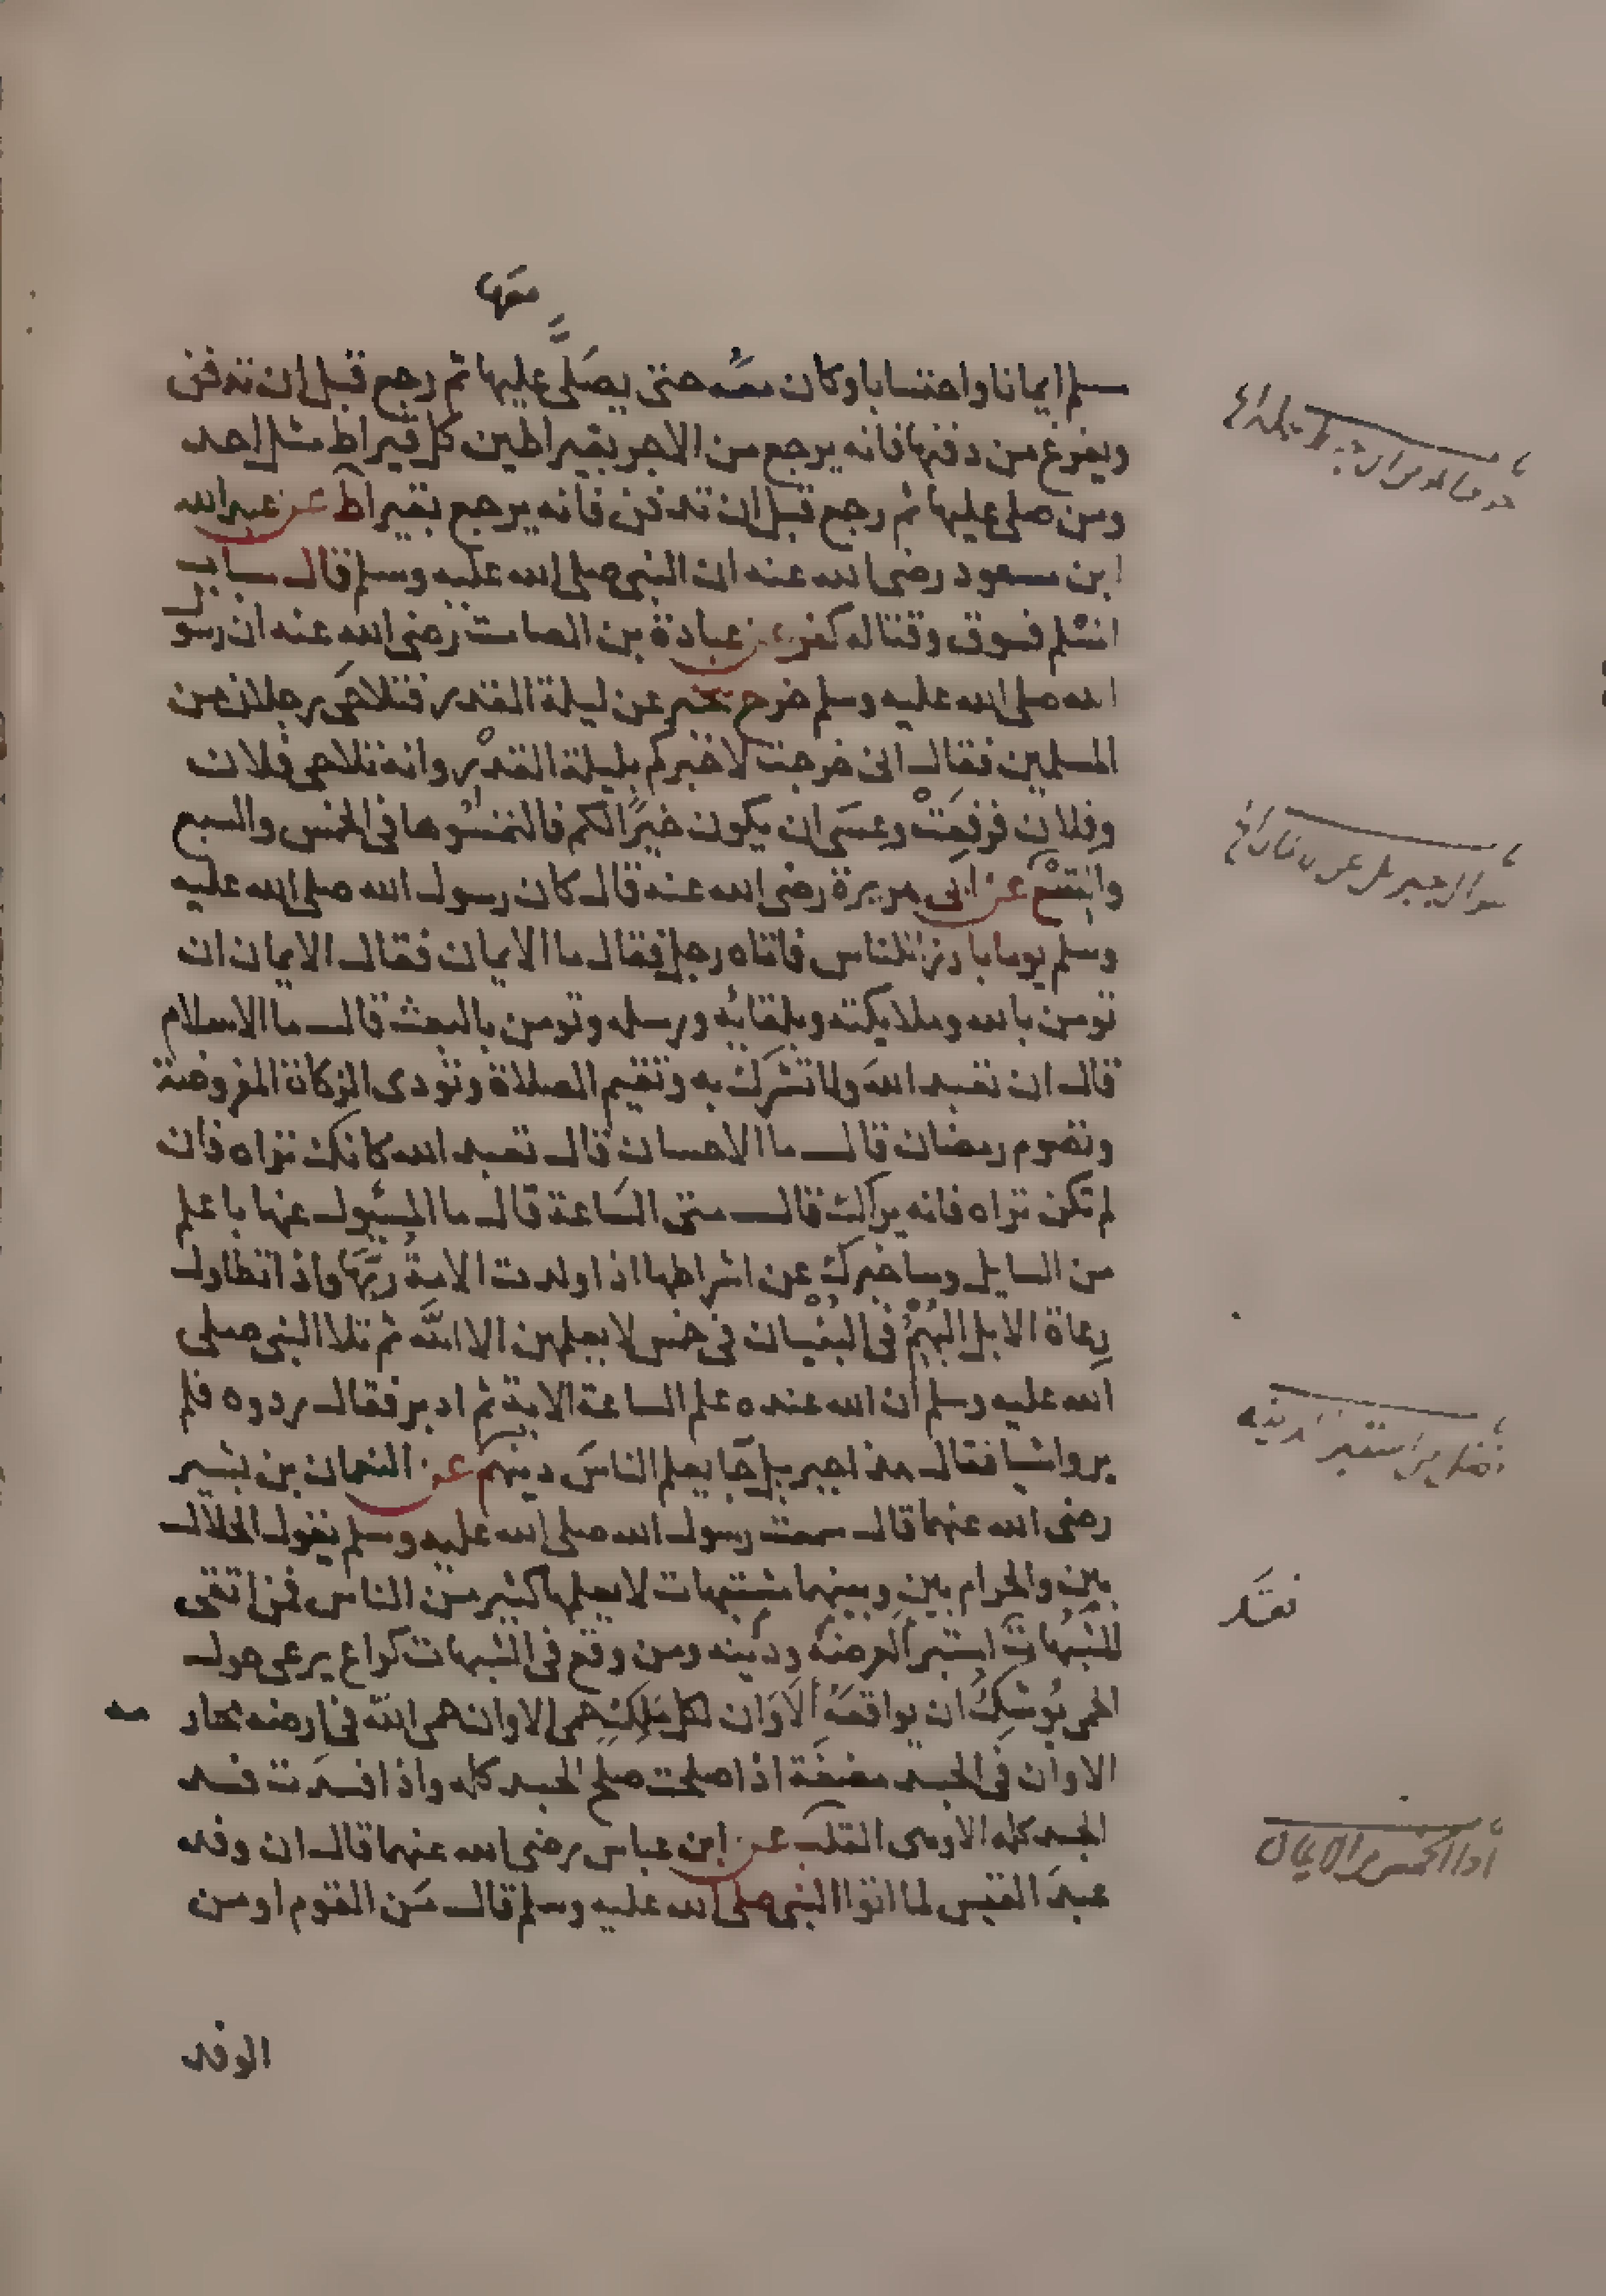 معها
مسلم ايمانا واحتسابا وكان معه حتى يصلى عليها ثم رجع قبل ان تدفن
ويفرغ من دفنها فانه يرجع من الاجر بقيراطين كل قيراط مثل احد
ومن صلى عليها ثم رجع قبل ان تدفن فانه يرجع بقيراط عن عبد الله
ابن مسعود رضى الله عنه ان النبى صلى الله عليه وسلم قال سباب
المسلم فسوق وقتاله كفر عن عبادة بن الصامت رضى الله عنه ان رسول
الله صلى الله عليه وسلم خرج يخبر عن ليلة القدر فتلاحى رجلان من
المسلمين فقال انى خرجت لاخبركم بليلة القدر وانه تلاحى فلان
وفلان فرفعت وعسى ان يكون خيرا لكم فالتمسوها فى الخمس والسبع
والتسع عن ابى هريرة رضى الله عنه قال كان رسول الله صلى الله عليه
وسلم يوما بارزا للناس فاتاه رجل فقال ما الايمان فقال الايمان ان
تومن بالله وملايكته وبلقائه ورسله وتومن بالبعث قال ما الاسلام
قال ان تعبد الله ولا تشرك به وتقيم الصلاة وتؤدى الزكاة المفروضة
وتصوم رمضان قال ما الاحسان قال تعبد الله كانك تراه فان
لم تكن تراه فانه يراك قال متى الساعة قال ما المسؤل عنها باعلم
من السايل وساخبرك عن اشراطها اذا ولدت الامة ربها واذا تطاول
رعاة الابل البهم فى البنيان فى خمس لا يعلمهن الا الله ثم تلا النبى صلى
الله عليه وسلم ان الله عنده علم الساعة الاية ثم ادبر فقال ردوه فلم
يروا شيا فقال هذا جبريل جا يعلم الناس دينهم عن النعمان بن بشير
رضى الله عنهما قال سمعت رسول الله صلى الله عليه وسلم يقول الحلال
بين والحرام بين وبينهما مشتبهات لا يعلمها كثير من الناس فمن اتقى
المشبهات استبرا لعرضه ودينه ومن وقع فى الشبهات كراع يرعى حول
الحمى يوشك ان يواقعه الا وان لكل ملك حمى الا وان حمى الله فى ارضه محار
مه
الا وان فى الجسد مضغة اذا صلحت صلح الجسد كله واذا فسدت فسد
الجسد كله الا وهى القلب عن ابن عباس رضى الله عنهما قال ان وفد
عبد القيس لما اتوا النبى صلى الله عليه وسلم قال من القوم او من
الوفد
سوال جبريل عن
فضل من استبرا لدينه
اداء الخمس من الايمان